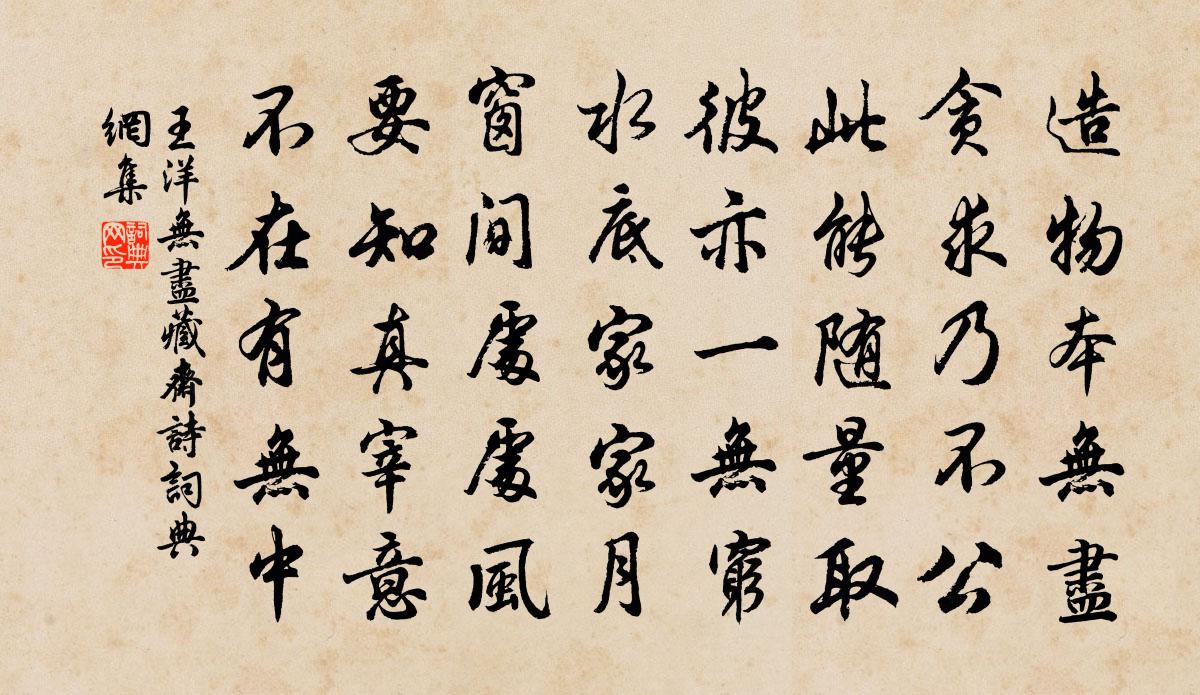 造物本無盡
貪求乃不公
此能随量取
彼亦一無窮
水底家家月
窗間處處風
要知真宰意
不在有無中
王洋無盡藏齋詩詞典
網集
詞典
网印